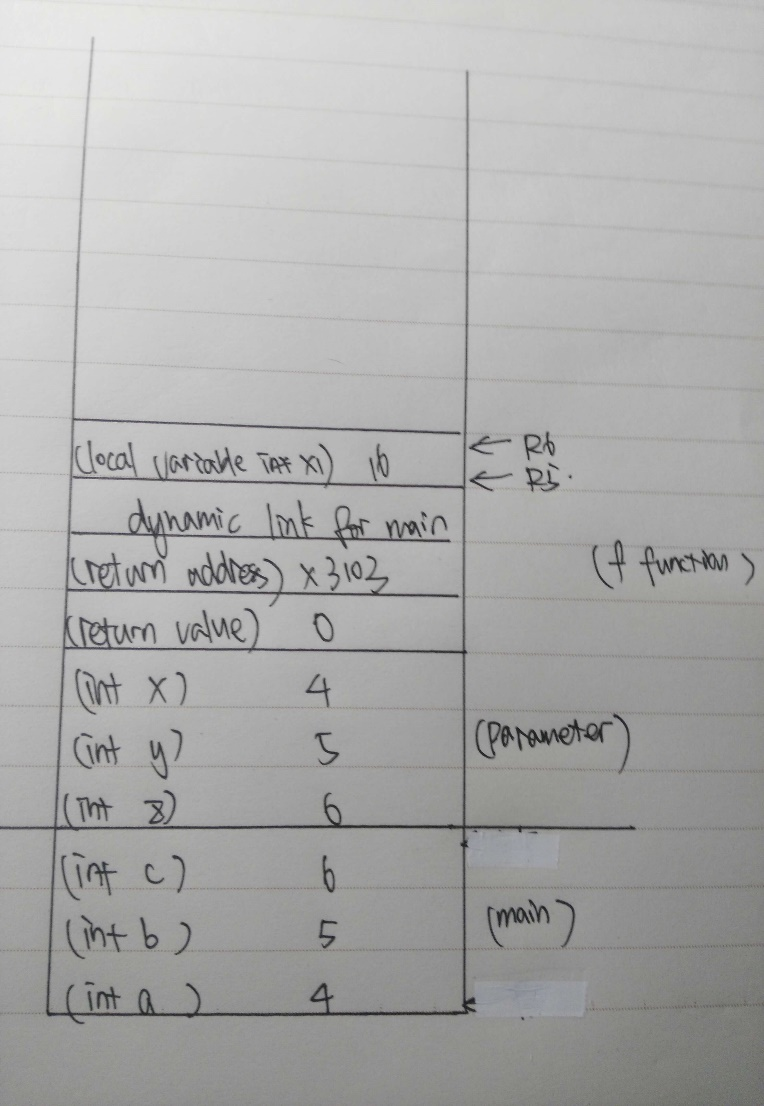 (local variable int x1) 16 ← R6
← R5.
dynamic link for main
(return address) x3103 (f function)
(return value) 0
(int x) 4
(int y) 5 (parameter)
(int z) 6
(int c) 6
(int b) 5 (main)
(int a) 4